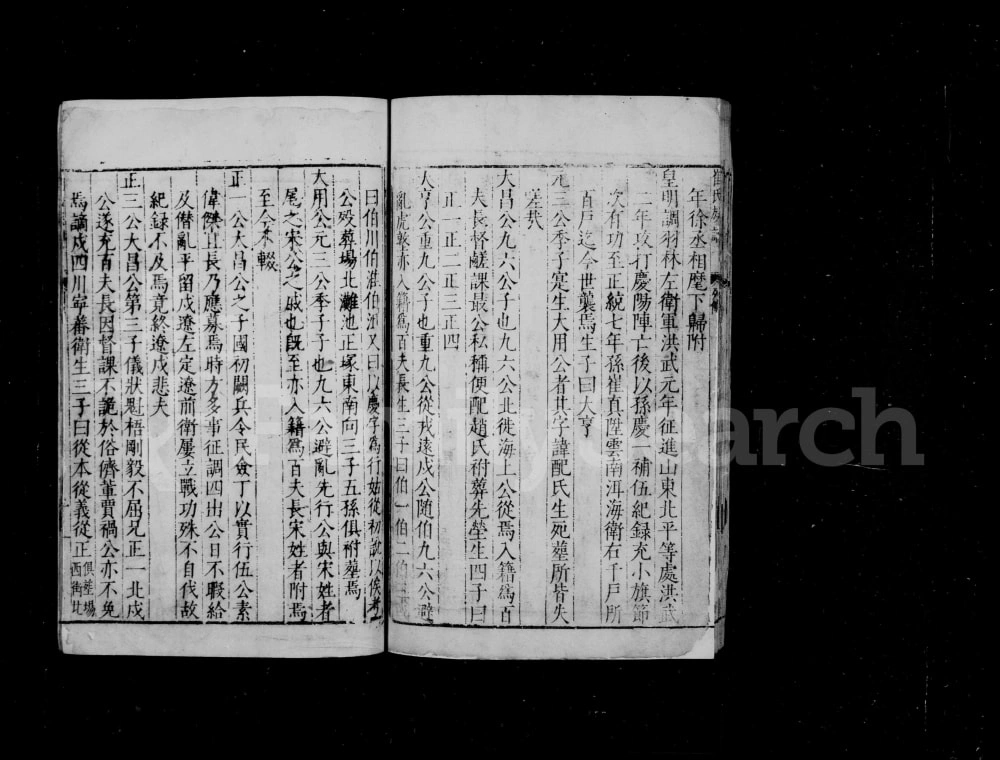 年徐丞相麾下歸附
皇明調羽林左衛軍洪武元年征進山東北平等處洪武
二年攻打慶陽陣亡後以孫慶一補伍紀錄充小旗節
次有功至正統七年孫崔真陞雲南洱海衛右千戶所
百戶迄今世襲焉生子曰大亨
元三公季子寔生大用公者其字諱配氏生兇塟所皆失
差哉
大昌公九六公子也九六公北徙海上公從焉入籍為百
夫長督鹺課最公私稱便配趙氏祔葬先塋生四子曰
正一正二正三正四
大亨公重九公子也重九公從戎遠戍公随伯九六公避
亂虎敦亦入籍為百夫長生三子曰伯一伯二伯
曰伯川伯湛伯洲又曰以慶字為行姑從初說以俟考
公歿葬場北灘池正塚東南向三子五孫俱祔墓焉
大用公元三公季子子也九六公避亂先行公與宋姓者
尾之宋公之戚也既至亦入籍為百夫長宋姓者附焉
至今未輟
正一公大昌公之子國初闕兵令民僉丁以實行伍公素
偉傑且長乃應募焉時方多事征調四出公日不暇給
及僭亂平留戍遼左定遼前衛屢立戰功殊不自伐故
紀錄不及焉竟終遼戍悲夫
正三公大昌公第三子儀狀魁梧剛毅不屈兄正一北戍
公遂充百夫長因督課不詭於俗儕董賈禍公亦不免
焉謫戍四川寧番衛生三子曰從本從義從正俱塟場西街北
FamilySearch